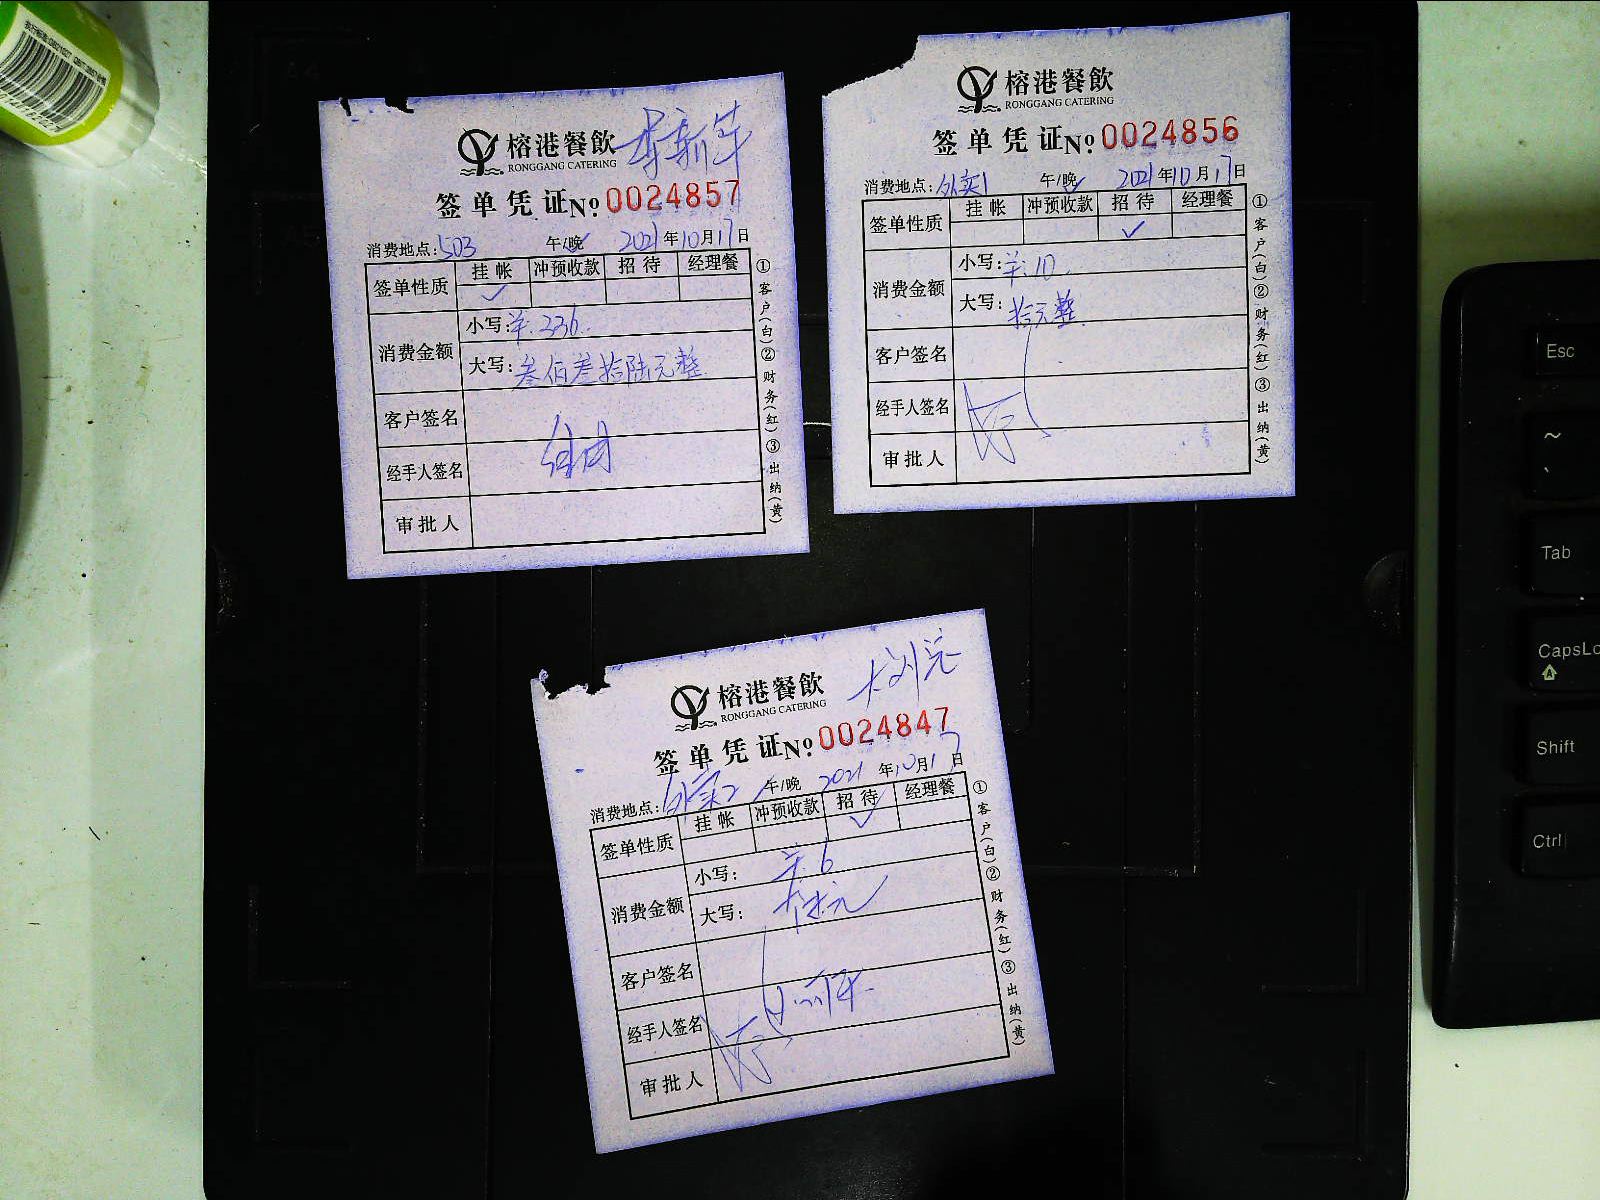 榕港餐飲
RONGGANG CATERING
李新华
签单凭证№ 0024857
消费地点:503 午/晚 2021年10月17日
签单性质 挂帐 冲预收款 招待 经理餐
✓
消费金额
小写:羊.336.
大写:叁佰叁拾陆元整
客户签名
经手人签名
审批人
①客户(白)②财务(红)③出纳(黄)
榕港餐飲
RONGGANG CATERING
签单凭证№ 0024856
消费地点:外卖1 午/晚 2021年10月17日
签单性质 挂帐 冲预收款 招待 经理餐
✓
消费金额
小写:羊.10.
大写:拾元整
客户签名
经手人签名
审批人
①客户(白)②财务(红)③出纳(黄)
榕港餐飲
RONGGANG CATERING
签单凭证№ 0024847
消费地点:外卖2 午/晚 2021年10月17日
签单性质 挂帐 冲预收款 招待 经理餐
✓
消费金额
小写: 羊.6
大写:
客户签名
经手人签名
审批人
①客户(白)②财务(红)③出纳(黄)
Esc
~
`
Tab
CapsLo
Shift
Ctrl